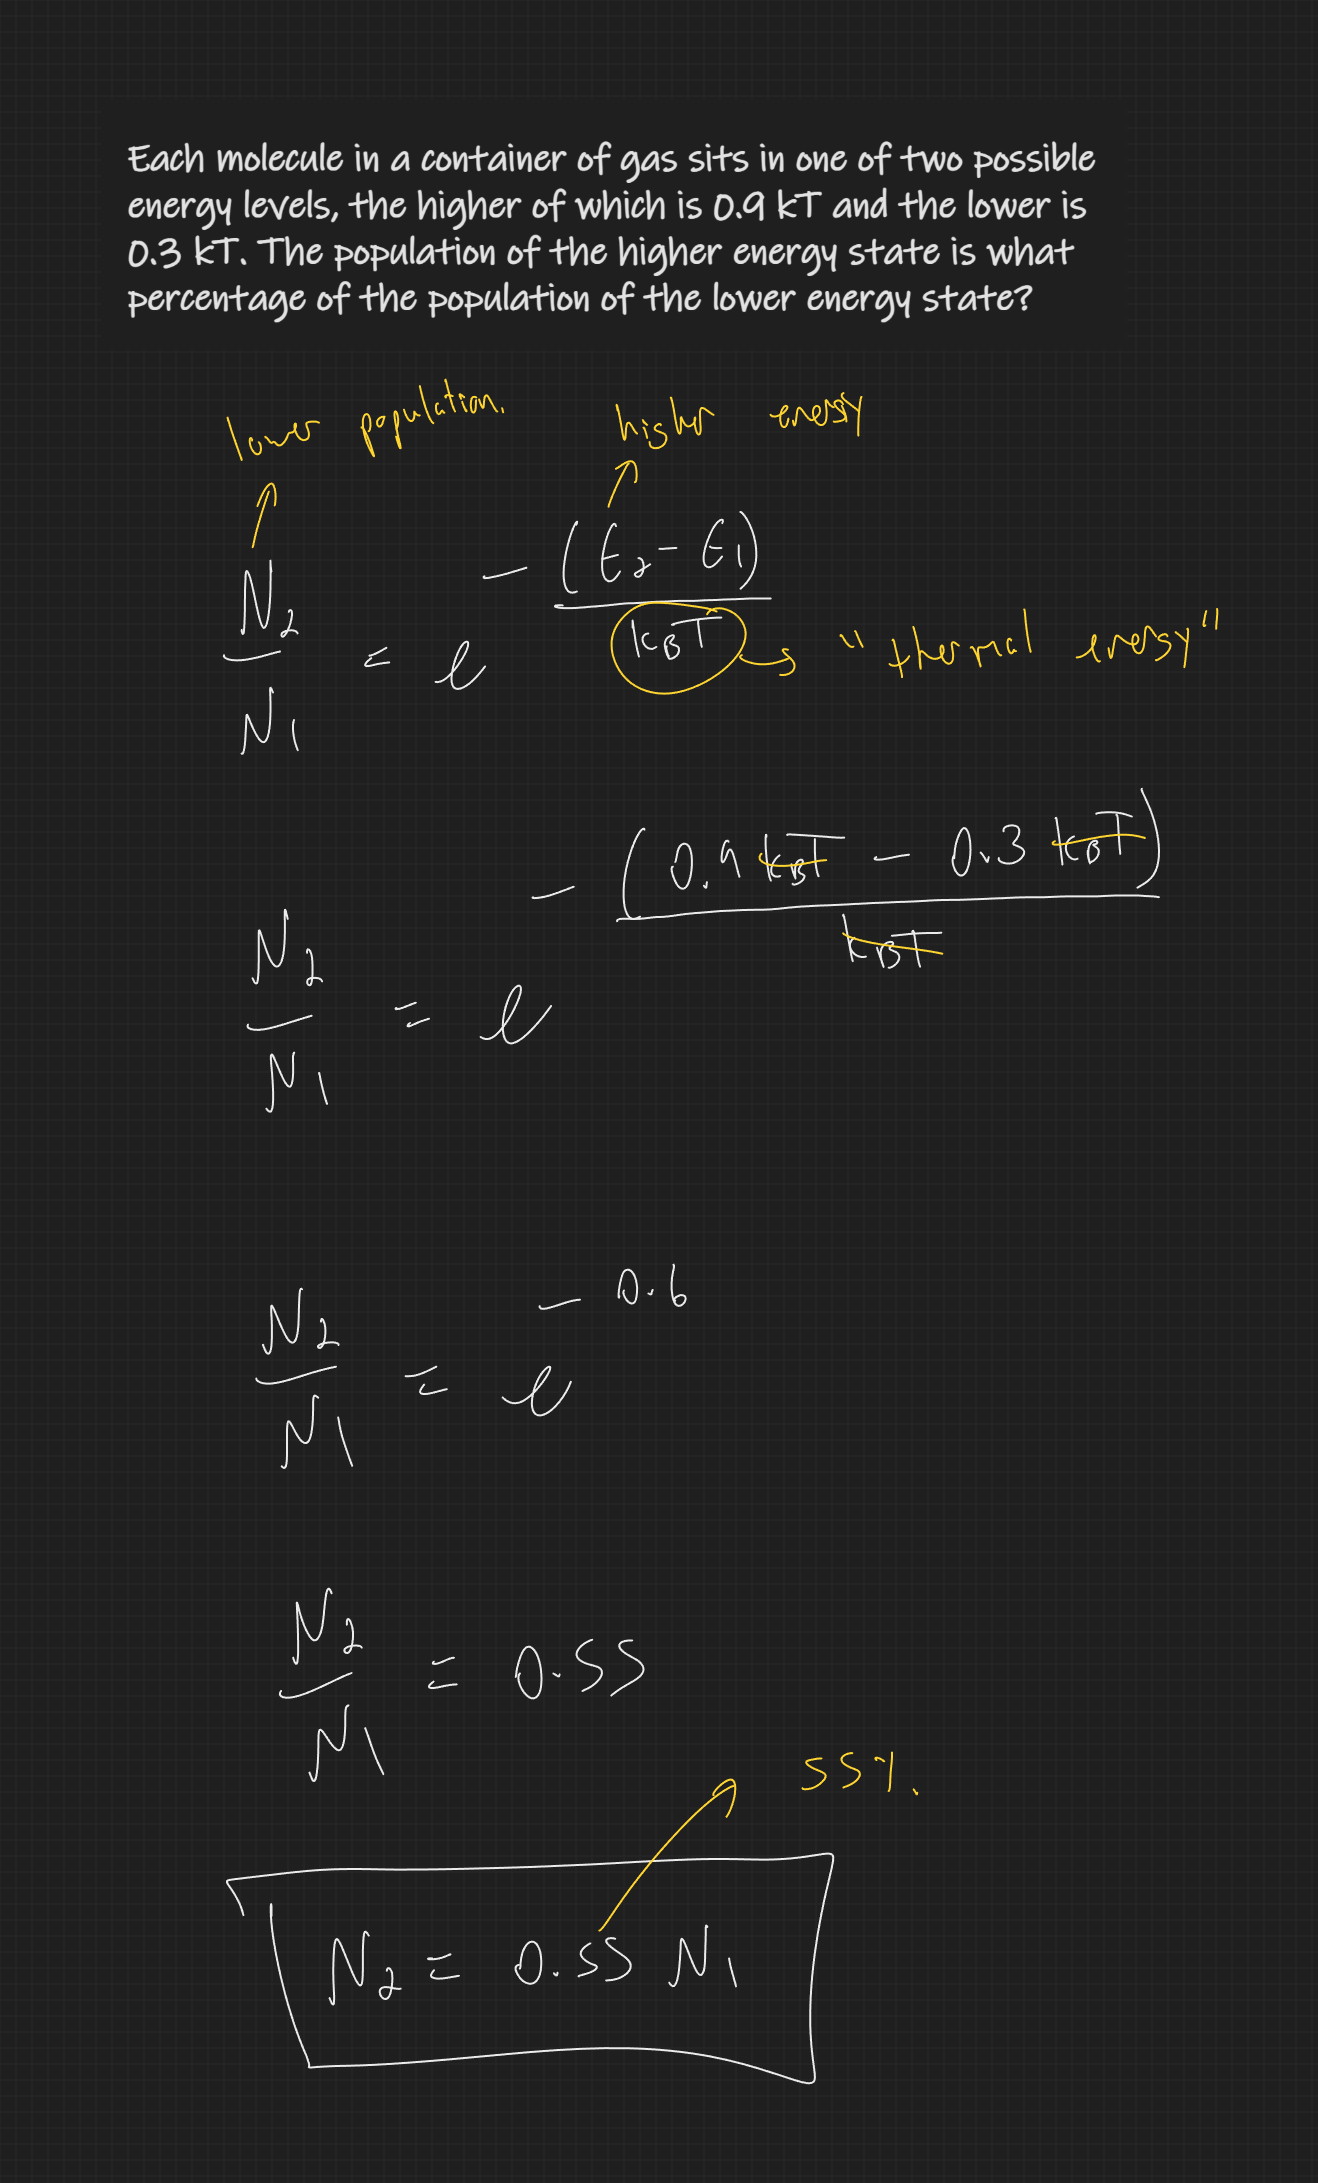 Each molecule in a container of gas sits in one of two possible
energy levels, the higher of which is 0.9 kT and the lower is
0.3 kT. The population of the higher energy state is what
percentage of the population of the lower energy state?
lower population. higher energy
N₂/N₁ = e^(-(E₂ - E₁)/(k_BT)) → "thermal energy"
N₂/N₁ = e^(-(0.9 k_BT - 0.3 k_BT)/(k_BT))
N₂/N₁ = e^(-0.6)
N₂/N₁ = 0.55
55%.
N₂ = 0.55 N₁